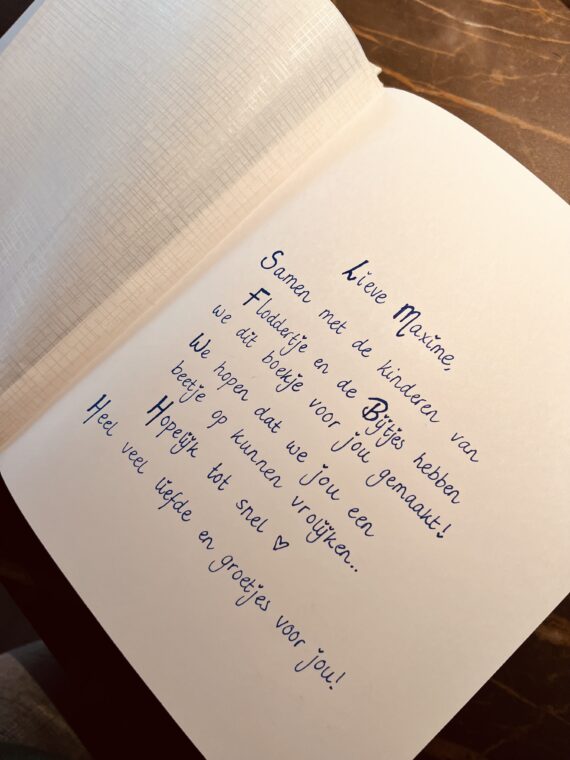 Lieve Maxime,
Samen met de kinderen van
Floddertje en de Bijtjes hebben
we dit boekje voor jou gemaakt!
We hopen dat we jou een
beetje op kunnen vrolijken..
Hopelijk tot snel ♡
Heel veel liefde en groetjes voor jou!